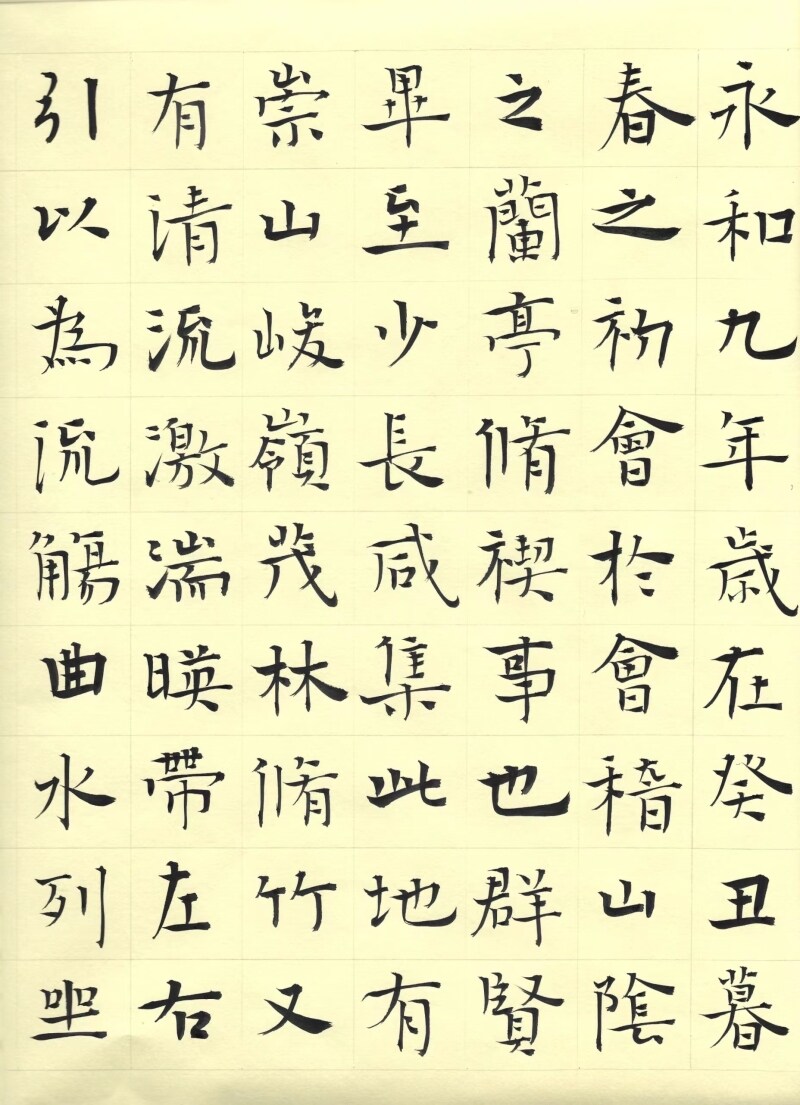 永和九年歲在癸丑暮
春之初會於會稽山陰
之蘭亭脩禊事也群賢
畢至少長咸集此地有
崇山峻嶺茂林脩竹又
有清流激湍暎帶左右
引以為流觴曲水列坐